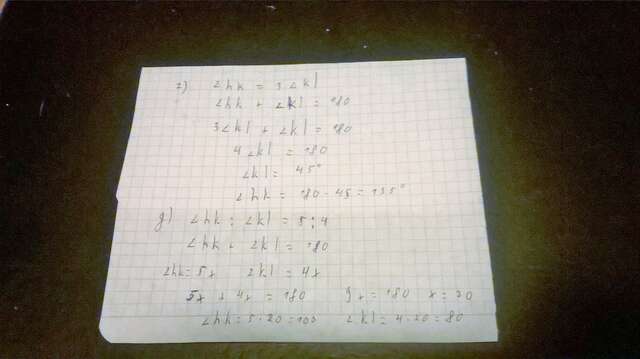 г) ∠hk = 3∠kl
∠hk + ∠kl = 180
3∠kl + ∠kl = 180
4∠kl = 180
∠kl = 45°
∠hk = 180 - 45 = 135°
д) ∠hk : ∠kl = 5 : 4
∠hk + ∠kl = 180
∠hk = 5x ∠kl = 4x
5x + 4x = 180 9x = 180 x = 20
∠hk = 5·20 = 100 ∠kl = 4·20 = 80